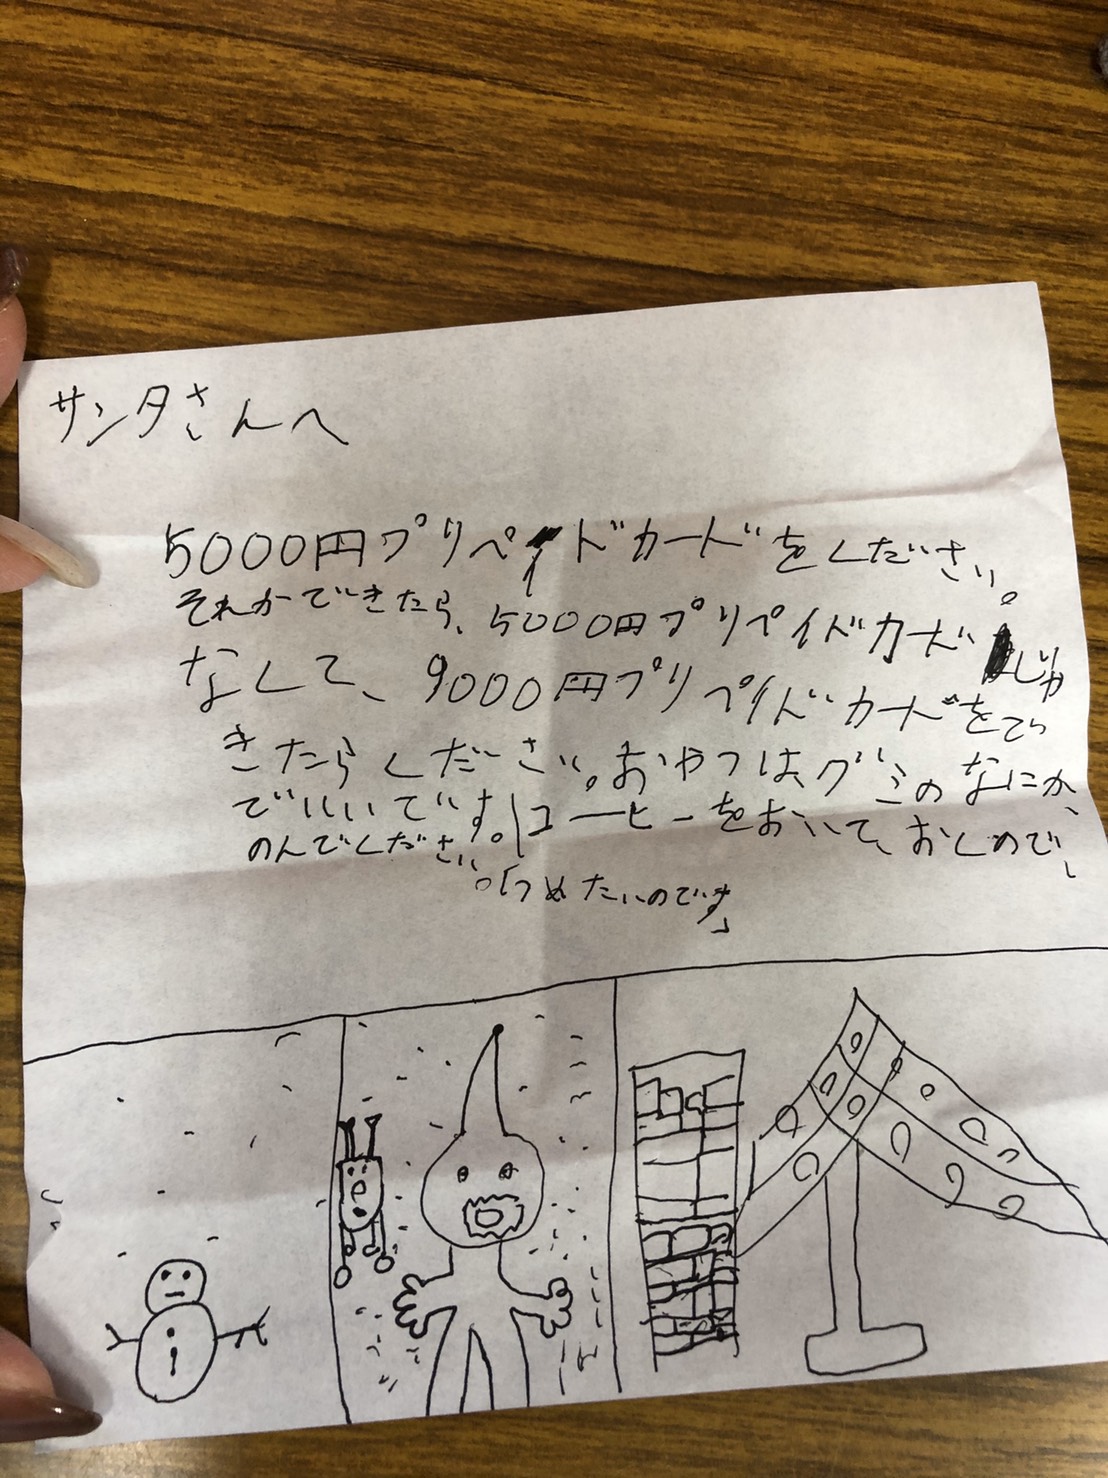 サンタさんへ
5000円プリペイドカードをください。
それかできたら、5000円プリペイドカードじゃ
なして、9000円プリペイドカードをで
きたらください。おやつは、グミのなにか、
でいいです。コーヒーをおいて、おくので、
のんでください。「つめたいのです」